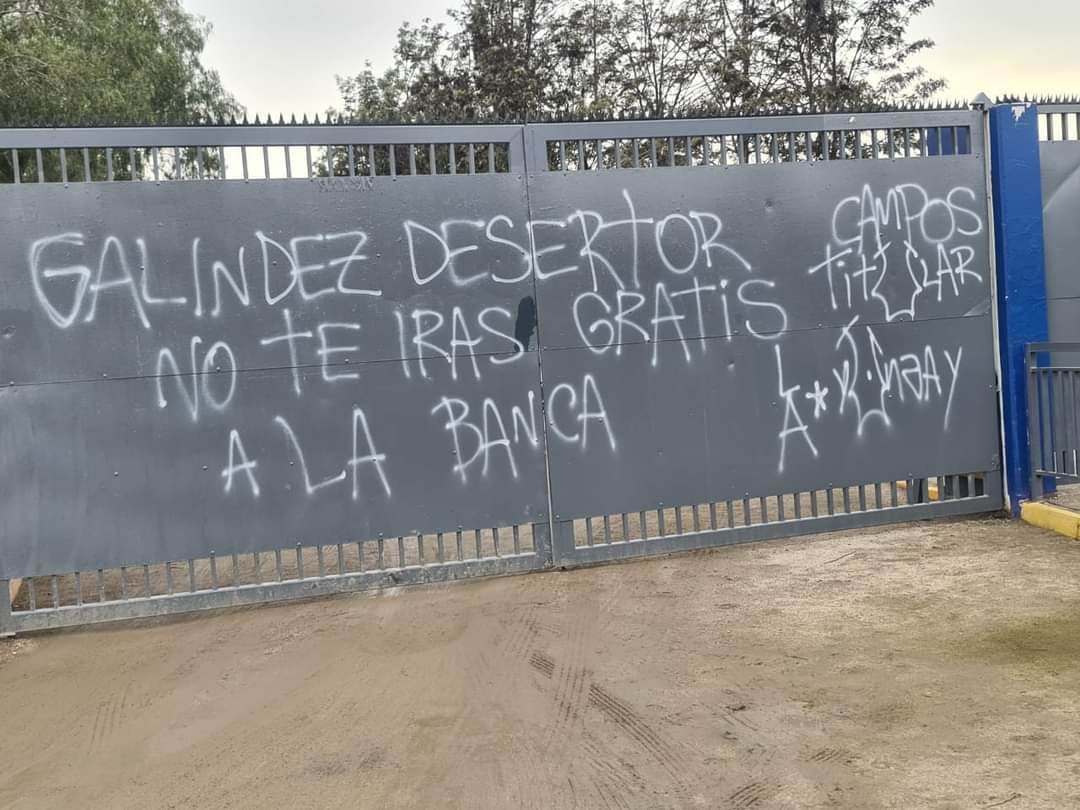 GALINDEZ DESERTOR
NO TE IRAS GRATIS
A LA BANCA
CAMPOS
TITULAR